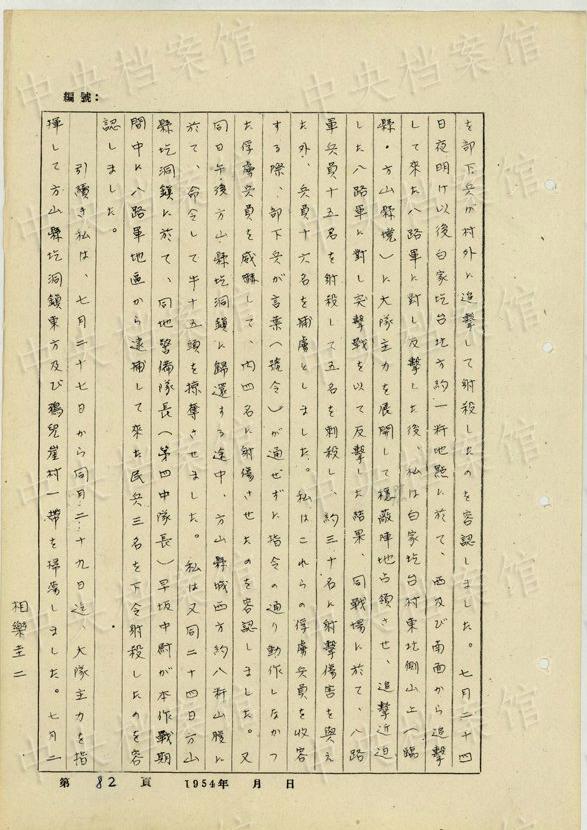 編號：
を部下兵が村外に追撃して射殺したのを容認しました。七月二十四
日夜明け以後白家圪台北方約一粁地點に於て、西及び南面から追撃
して來た八路軍に對し反撃した後、私は白家圪台村東北側山上（臨
縣・方山縣境）に大隊主力を展開して隱蔽陣地占領させ、追撃近迫
した八路軍に對し突撃戰を以て反撃した結果、同戰場に於て、八路
軍兵員十五名を射殺して五名を刺殺し、約三十名に射撃傷害を與え
た外、兵員十六名を捕虜としました。私はこれらの俘虜兵員を收容
する際、部下兵が言葉（號令）が通ぜずに指令の通り動作しなかつ
た俘虜兵員を威嚇して、内四名に射傷させたのを容認しました。又
同日午後方山縣圪洞鎮に歸還する途中、方山縣城西方約八粁山腹に
於て、命令して牛十五頭を掠奪させました。私は又同二十四日方山
縣圪洞鎮に於て同地警備隊長（第四中隊長）早坂中尉が本作戰期
間中に八路軍地區から逮捕して來た民兵三名を下令射殺したのを容
認しました。
引續き私は、七月二十七日から同月二十九日迄、大隊主力を指
揮して方山縣圪洞鎮東方及び鴉兒崖村一帶を掃蕩しました。七月二
相樂圭二
第 82 頁 1954年 月 日
中央档案馆